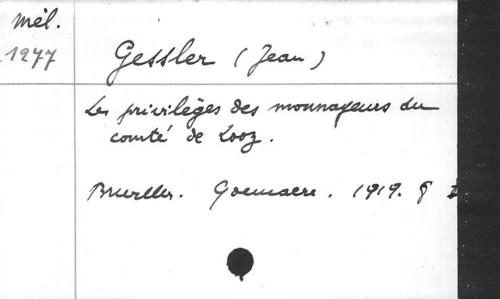 Mél.
1277
Gessler (Jean)
Les privilèges des monnayeurs du
comté de Looz.
Bruxelles. Goemaere. 1919. 8